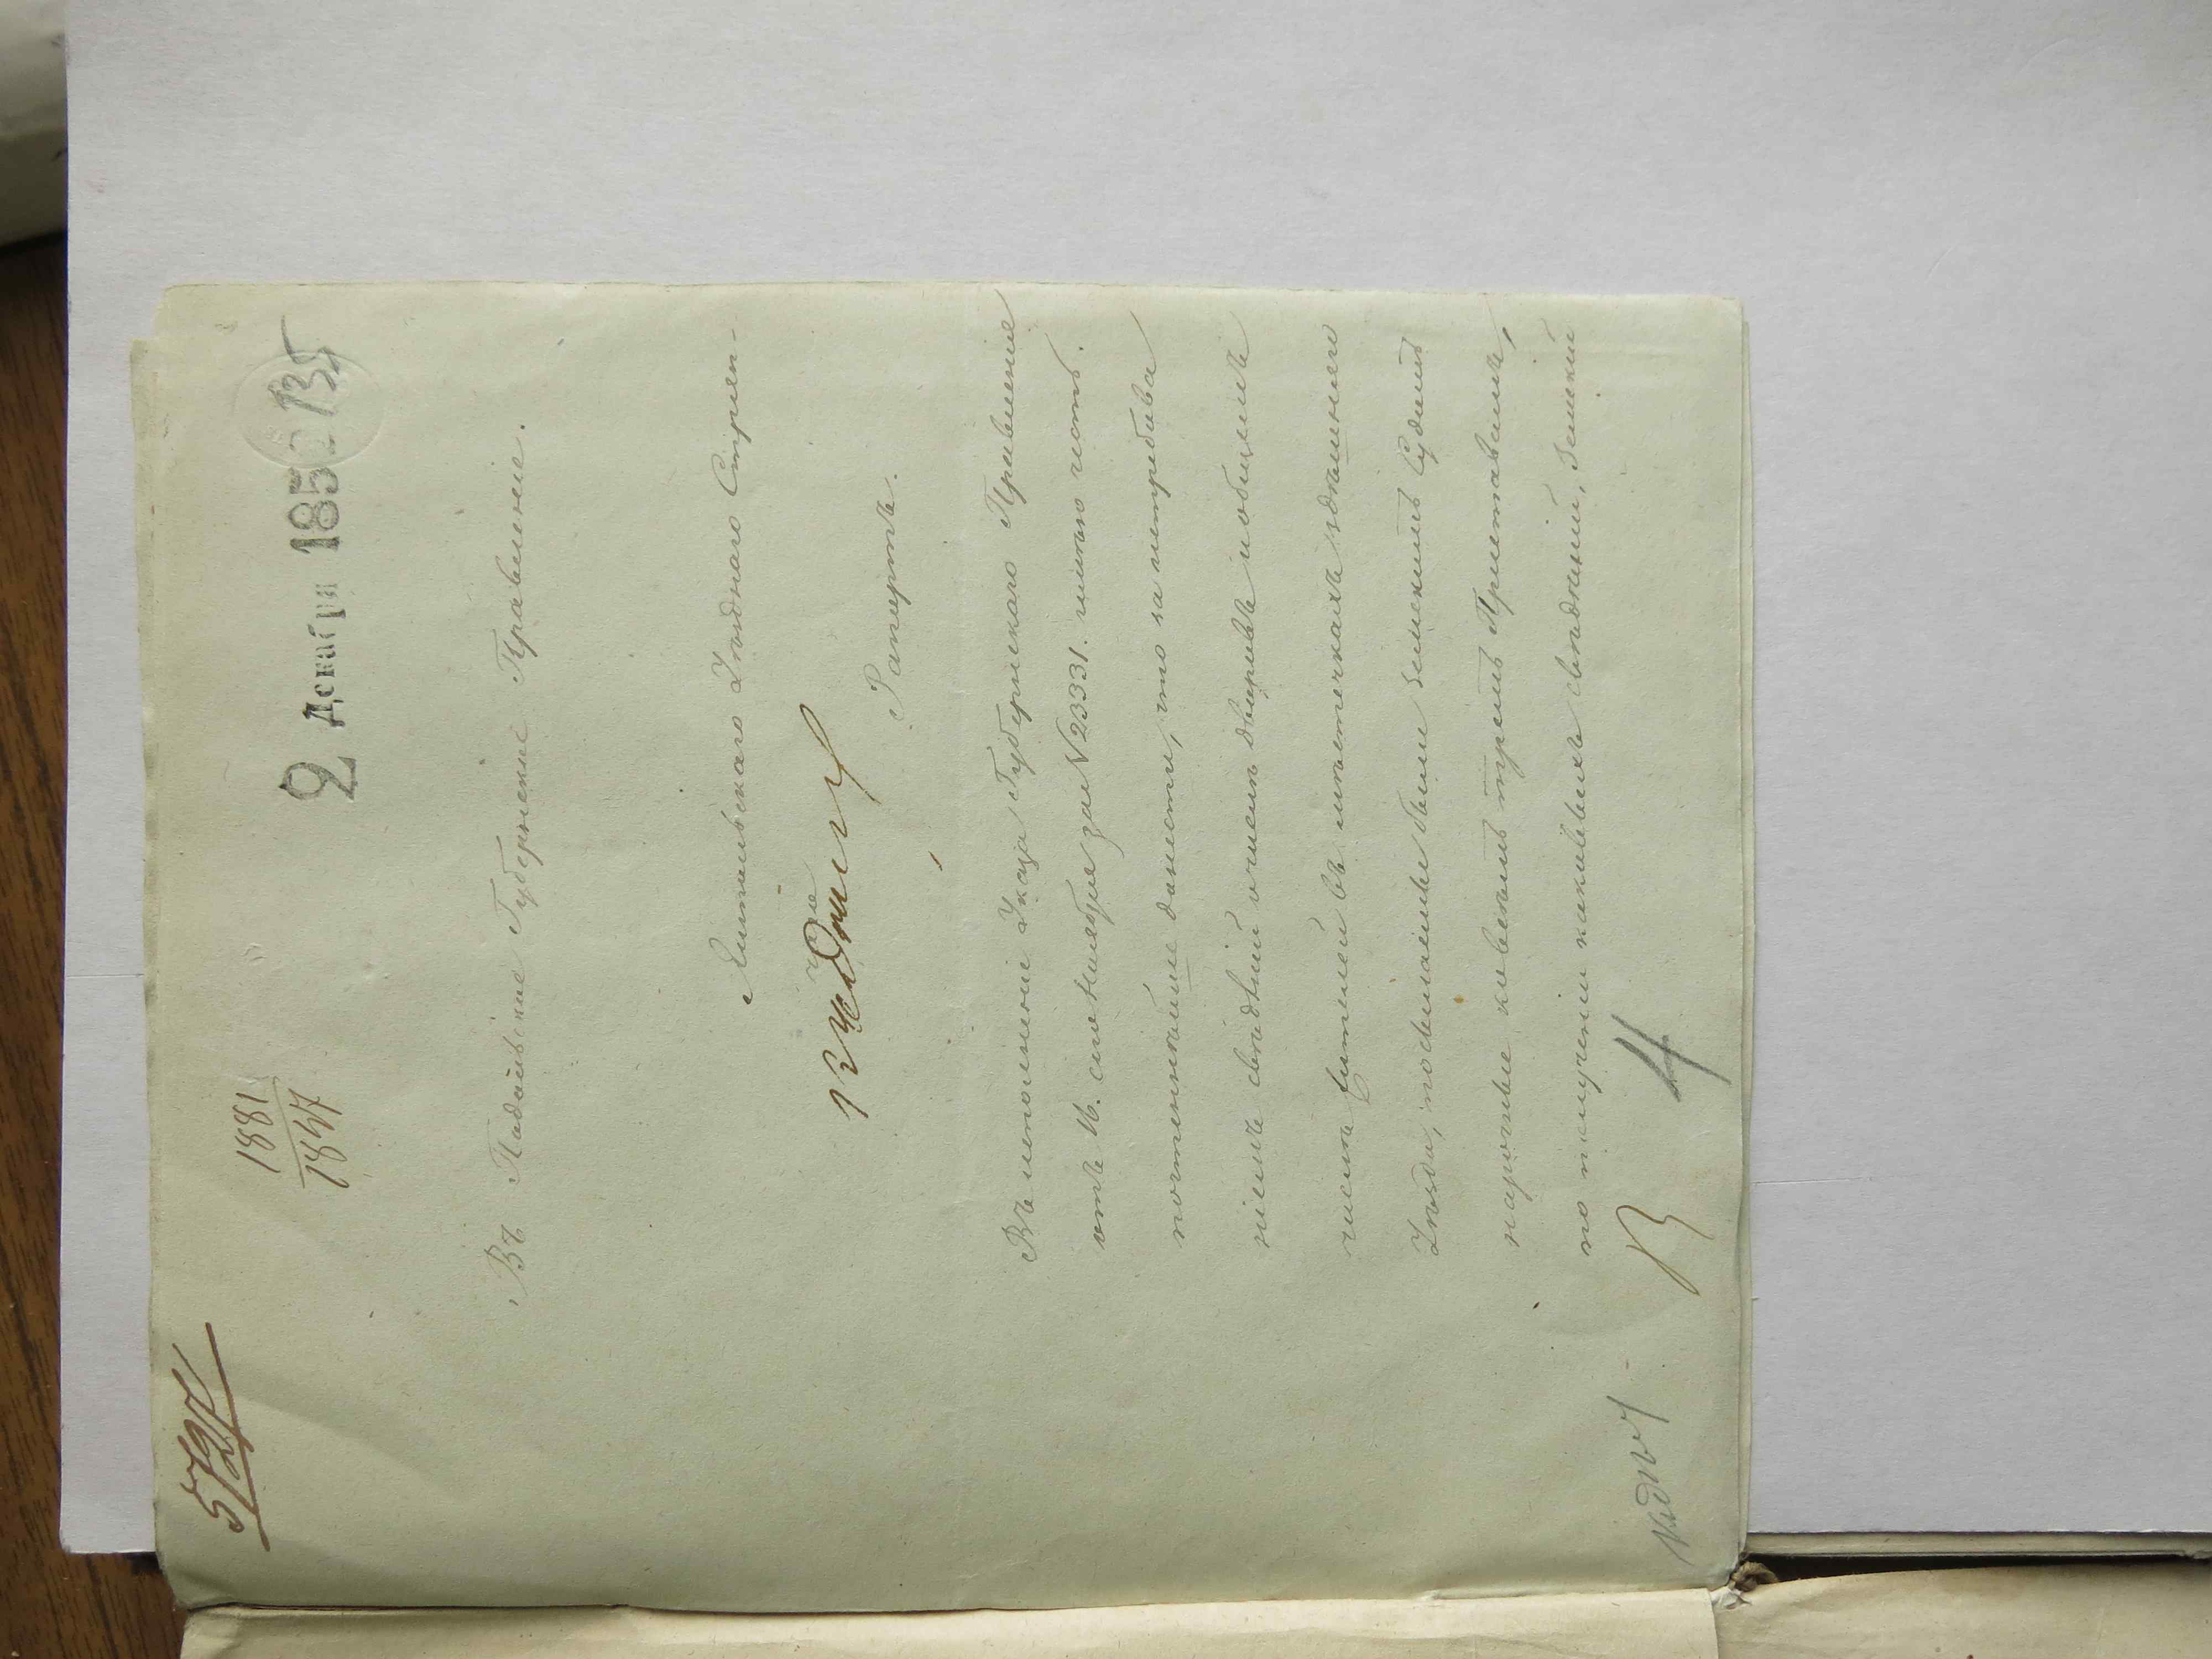 5727
1881
1847
2 Декабря 1850
135
Въ Подольское Губернское Правленіе.
Литинскаго Уѣзднаго Стряп-
чаго
Рапортъ.
Въ исполненіе Указа Губернскаго Правленія
отъ 16. сего Ноября за № 23331. имѣю честь
почтеннѣйше донести, что за истребова
ніемъ свѣдѣній о числѣ дворовъ и о общемъ
числѣ жителей въ мѣстечкахъ здѣшняго
Уѣзда, посылаемы были Земскимъ Судомъ
нарочные ко всѣмъ тремъ Приставамъ,
по полученіи каковыхъ свѣдѣній, Земскій